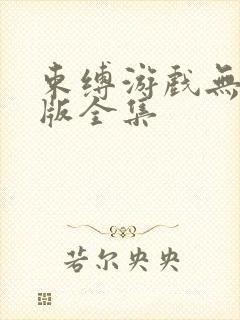 束缚游戏無
版全集
若尔央央